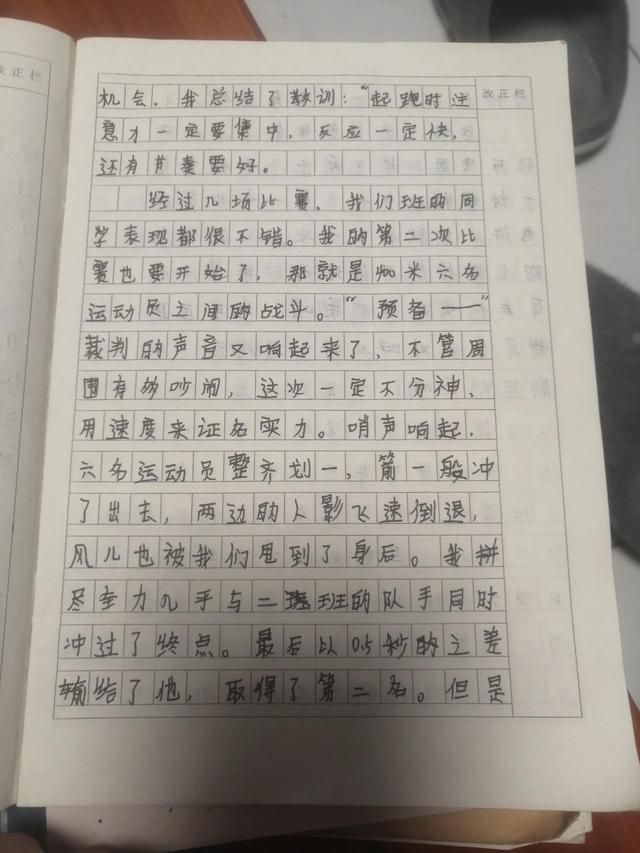 改正栏
改正栏
机会。我总结了教训：“起跑时注
意力一定要集中，反应一定快，
还有节奏要好。
经过几场比赛，我们班的同
学表现都很不错。我的第二次比
赛也要开始了，那就是400米六名
运动员之间的战斗。“预备——”
裁判的声音又响起来了，不管周
围有多吵闹，这次一定不分神，
用速度来证名实力。哨声响起，
六名运动员整齐划一，箭一般冲
了出去，两边的人影飞速倒退，
风儿也被我们甩到了身后。我拼
尽全力几乎与二班的队手同时
冲过了终点。最后以0.5秒的之差
输给了他，取得了第二名。但是